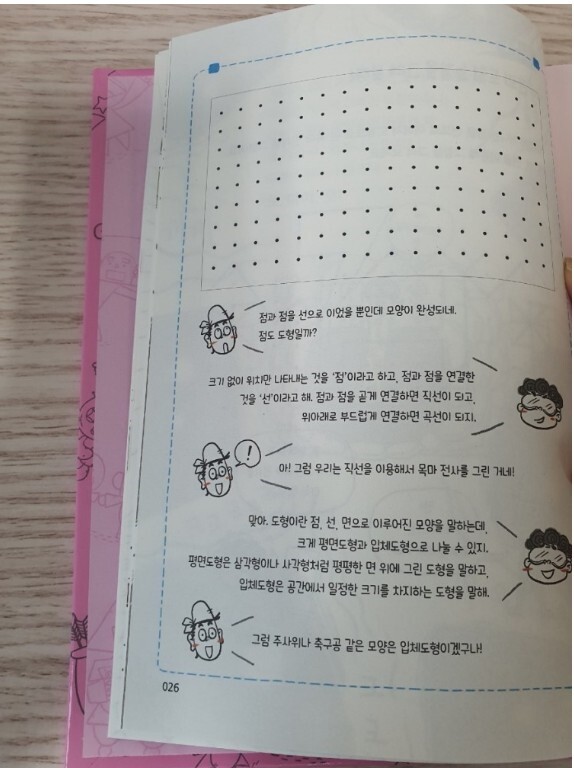 점과 점을 선으로 이었을 뿐인데 모양이 완성되네.
점도 도형일까?
크기 없이 위치만 나타내는 것을 '점'이라고 하고, 점과 점을 연결한
것을 '선'이라고 해. 점과 점을 곧게 연결하면 직선이 되고,
위아래로 부드럽게 연결하면 곡선이 되지.
!
아! 그럼 우리는 직선을 이용해서 목마 전사를 그린 거네!
맞아. 도형이란 점, 선, 면으로 이루어진 모양을 말하는데,
크게 평면도형과 입체도형으로 나눌 수 있지.
평면도형은 삼각형이나 사각형처럼 평평한 면 위에 그린 도형을 말하고,
입체도형은 공간에서 일정한 크기를 차지하는 도형을 말해.
그럼 주사위나 축구공 같은 모양은 입체도형이겠구나!
026